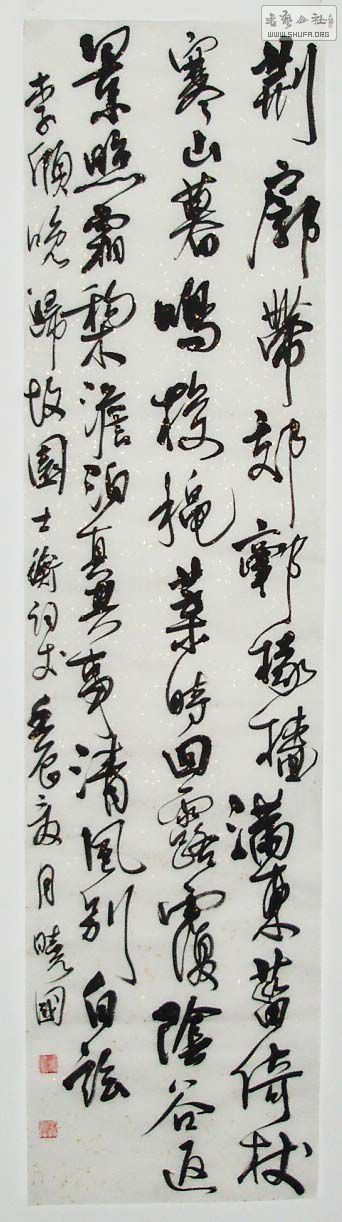 荆廓帶郊郭稼穡滿東菑倚杖
寒山暮鳴梭穐葉時回露覆陰谷返
景照霜梨澹泊真事清風別自
李頎晚歸故園士衡詞丈壬辰夏月曉國
書藝公社
WWW.SHUFA.ORG